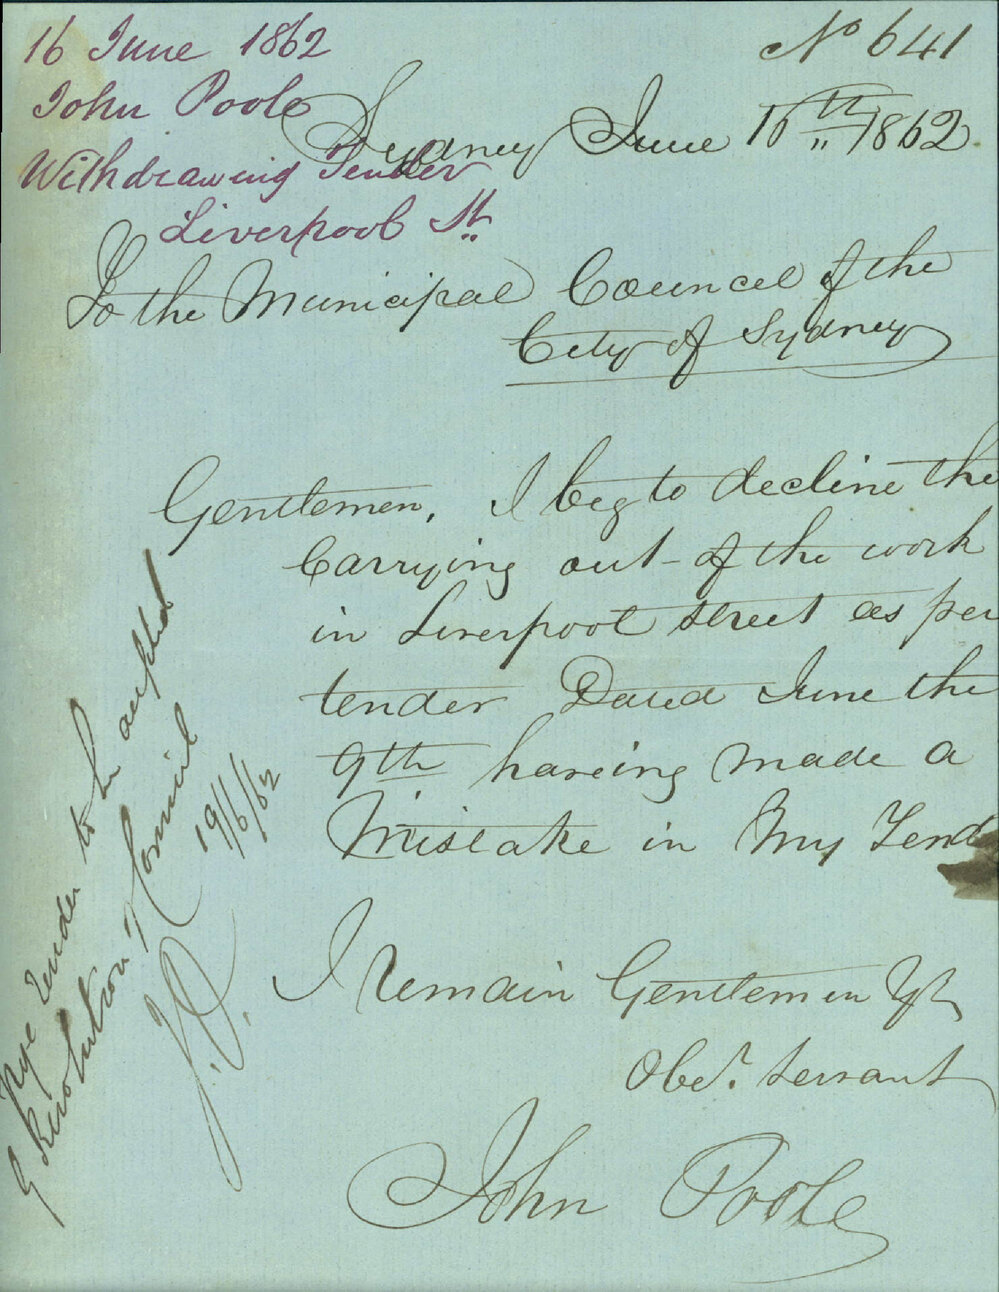 16 June 1862
John Poole
Withdrawing Tender
Liverpool St.
No 641
Sydney June 16th 1862
To the Municipal Council of the
City of Sydney
Gentlemen, I beg to decline the
Carrying out of the work
in Liverpool street as per
tender Dated June the
9th haveing made a
Mistake in My Tend
I remain Gentlemen Yr
Obet. servant
John Poole
Nye Tender to be accepted
Resolution of Council
19/6/62